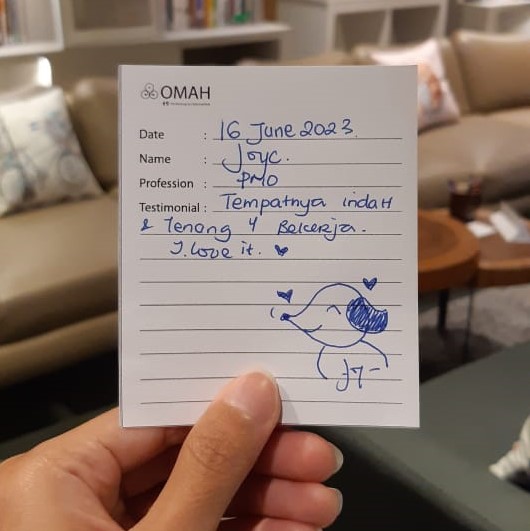 OMAH
Date : 16 June 2023.
Name : Joyc.
Profession : PMO
Testimonial : Tempatnya indah
& Tenang 4 Bekerja.
I love it.